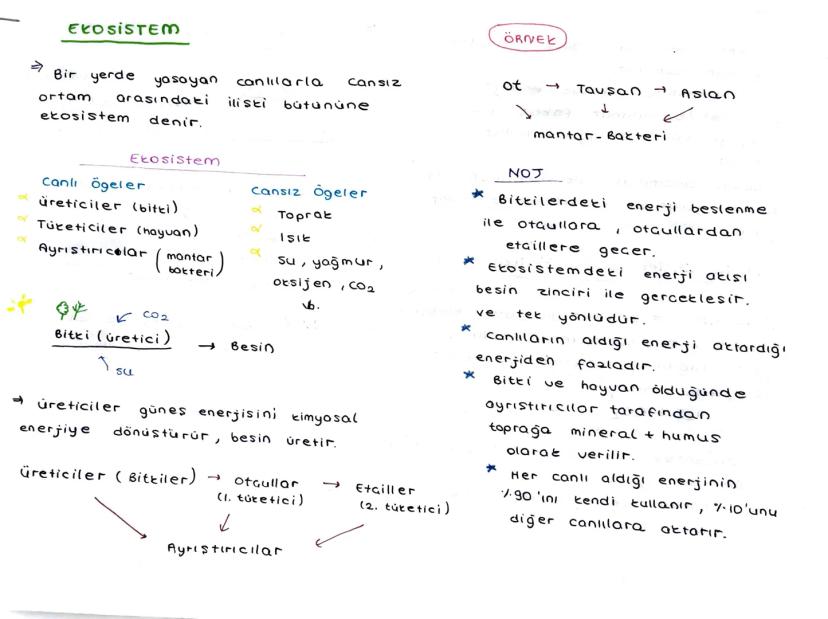 EKOSİSTEM
⇒ Bir yerde yaşayan canlılarla cansız
ortam arasındaki ilişki bütününe
ekosistem denir.
Ekosistem
Canlı Ögeler
üreticiler (bitki)
Tüketiciler (hayvan)
Ayrıştırıcılar (mantar
bakteri)
Cansız Ögeler
Toprak
Işık
Su, yağmur,
oksijen, CO2
vb.
CO2
Bitki (üretici) → Besin
su
→ üreticiler güneş enerjisini kimyasal
enerjiye dönüştürür, besin üretir.
üreticiler (Bitkiler) → Otçullar → Etçiller
(1. tüketici) (2. tüketici)
Ayrıştırıcılar
ÖRNEK
Ot → Tavşan → Aslan
mantar - Bakteri
NOT
* Bitkilerdeki enerji beslenme
ile otçullara, otçullardan
etçillere geçer.
* Ekosistemdeki enerji akışı
besin zinciri ile gerçekleşir.
ve tek yönlüdür.
* Canlıların aldığı enerji aktardığı
enerjiden fazladır.
* Bitki ve hayvan öldüğünde
ayrıştırıcılar tarafından
toprağa mineral + humus
olarak verilir.
* Her canlı aldığı enerjinin
%90'ını kendi kullanır, %10'unu
diğer canlılara aktarır.